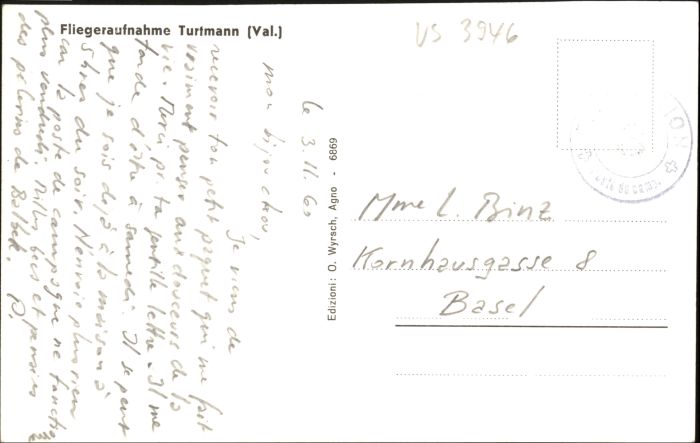 Fliegeraufnahme Turtmann (Val.)
VS 3946
le 3.11.60
mon bijou chou,
Je viens de
recevoir ton petit paquet qui me fait
vraiment penser aux douceurs de la
vie. Merci pr ta gentille lettre. Il me
tarde d'être à samedi. Il se peut
que je sois déjà à la maison à
5 hres du soir. N'envoie plus rien
car la poste de campagne ne fonctionne
plus vendredi. Milles becs et pensées
des pèlerins de
P.
Edizioni: O. Wyrsch, Agno - 6869
Mme L. Binz
Kornhausgasse 8
Basel